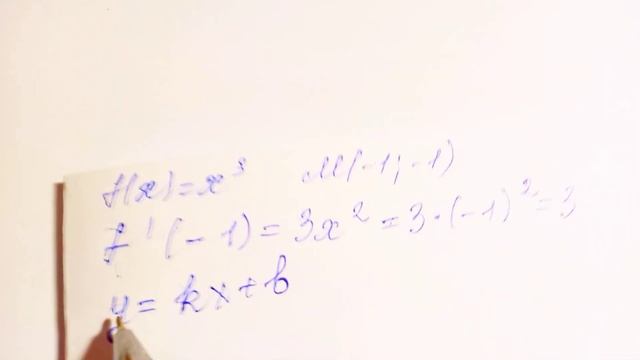 f(x)=x³ M(-1;-1)
f'(-1)=3x²=3·(-1)²=3
y=kx+b